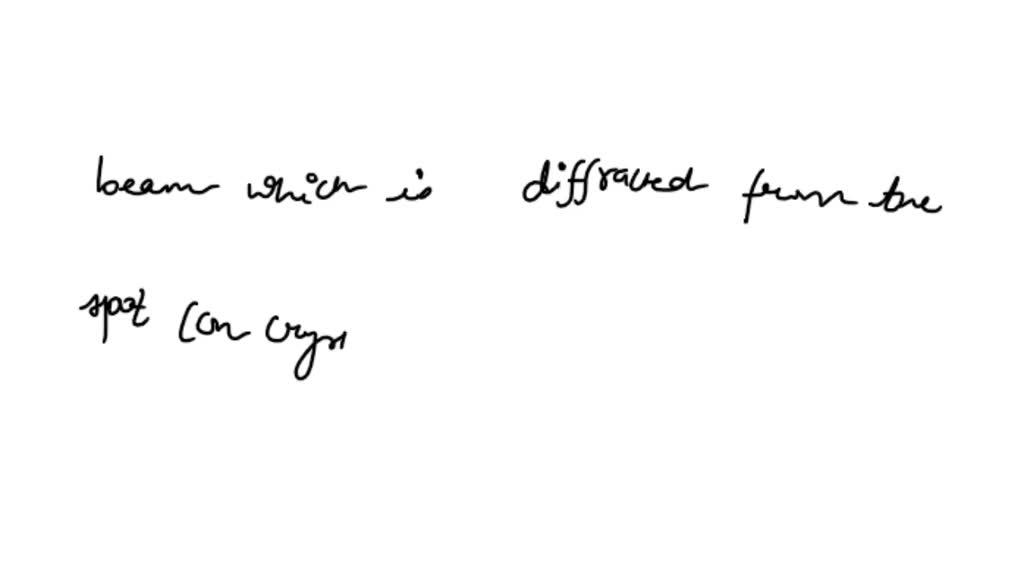 beam which is diffraced from the
spot (on crys